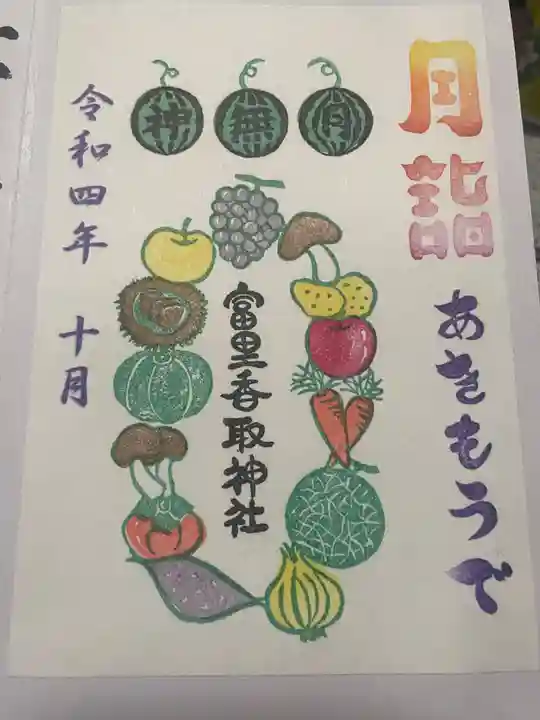 月詣
あきもうで
神無月
富里香取神社
令和四年 十月